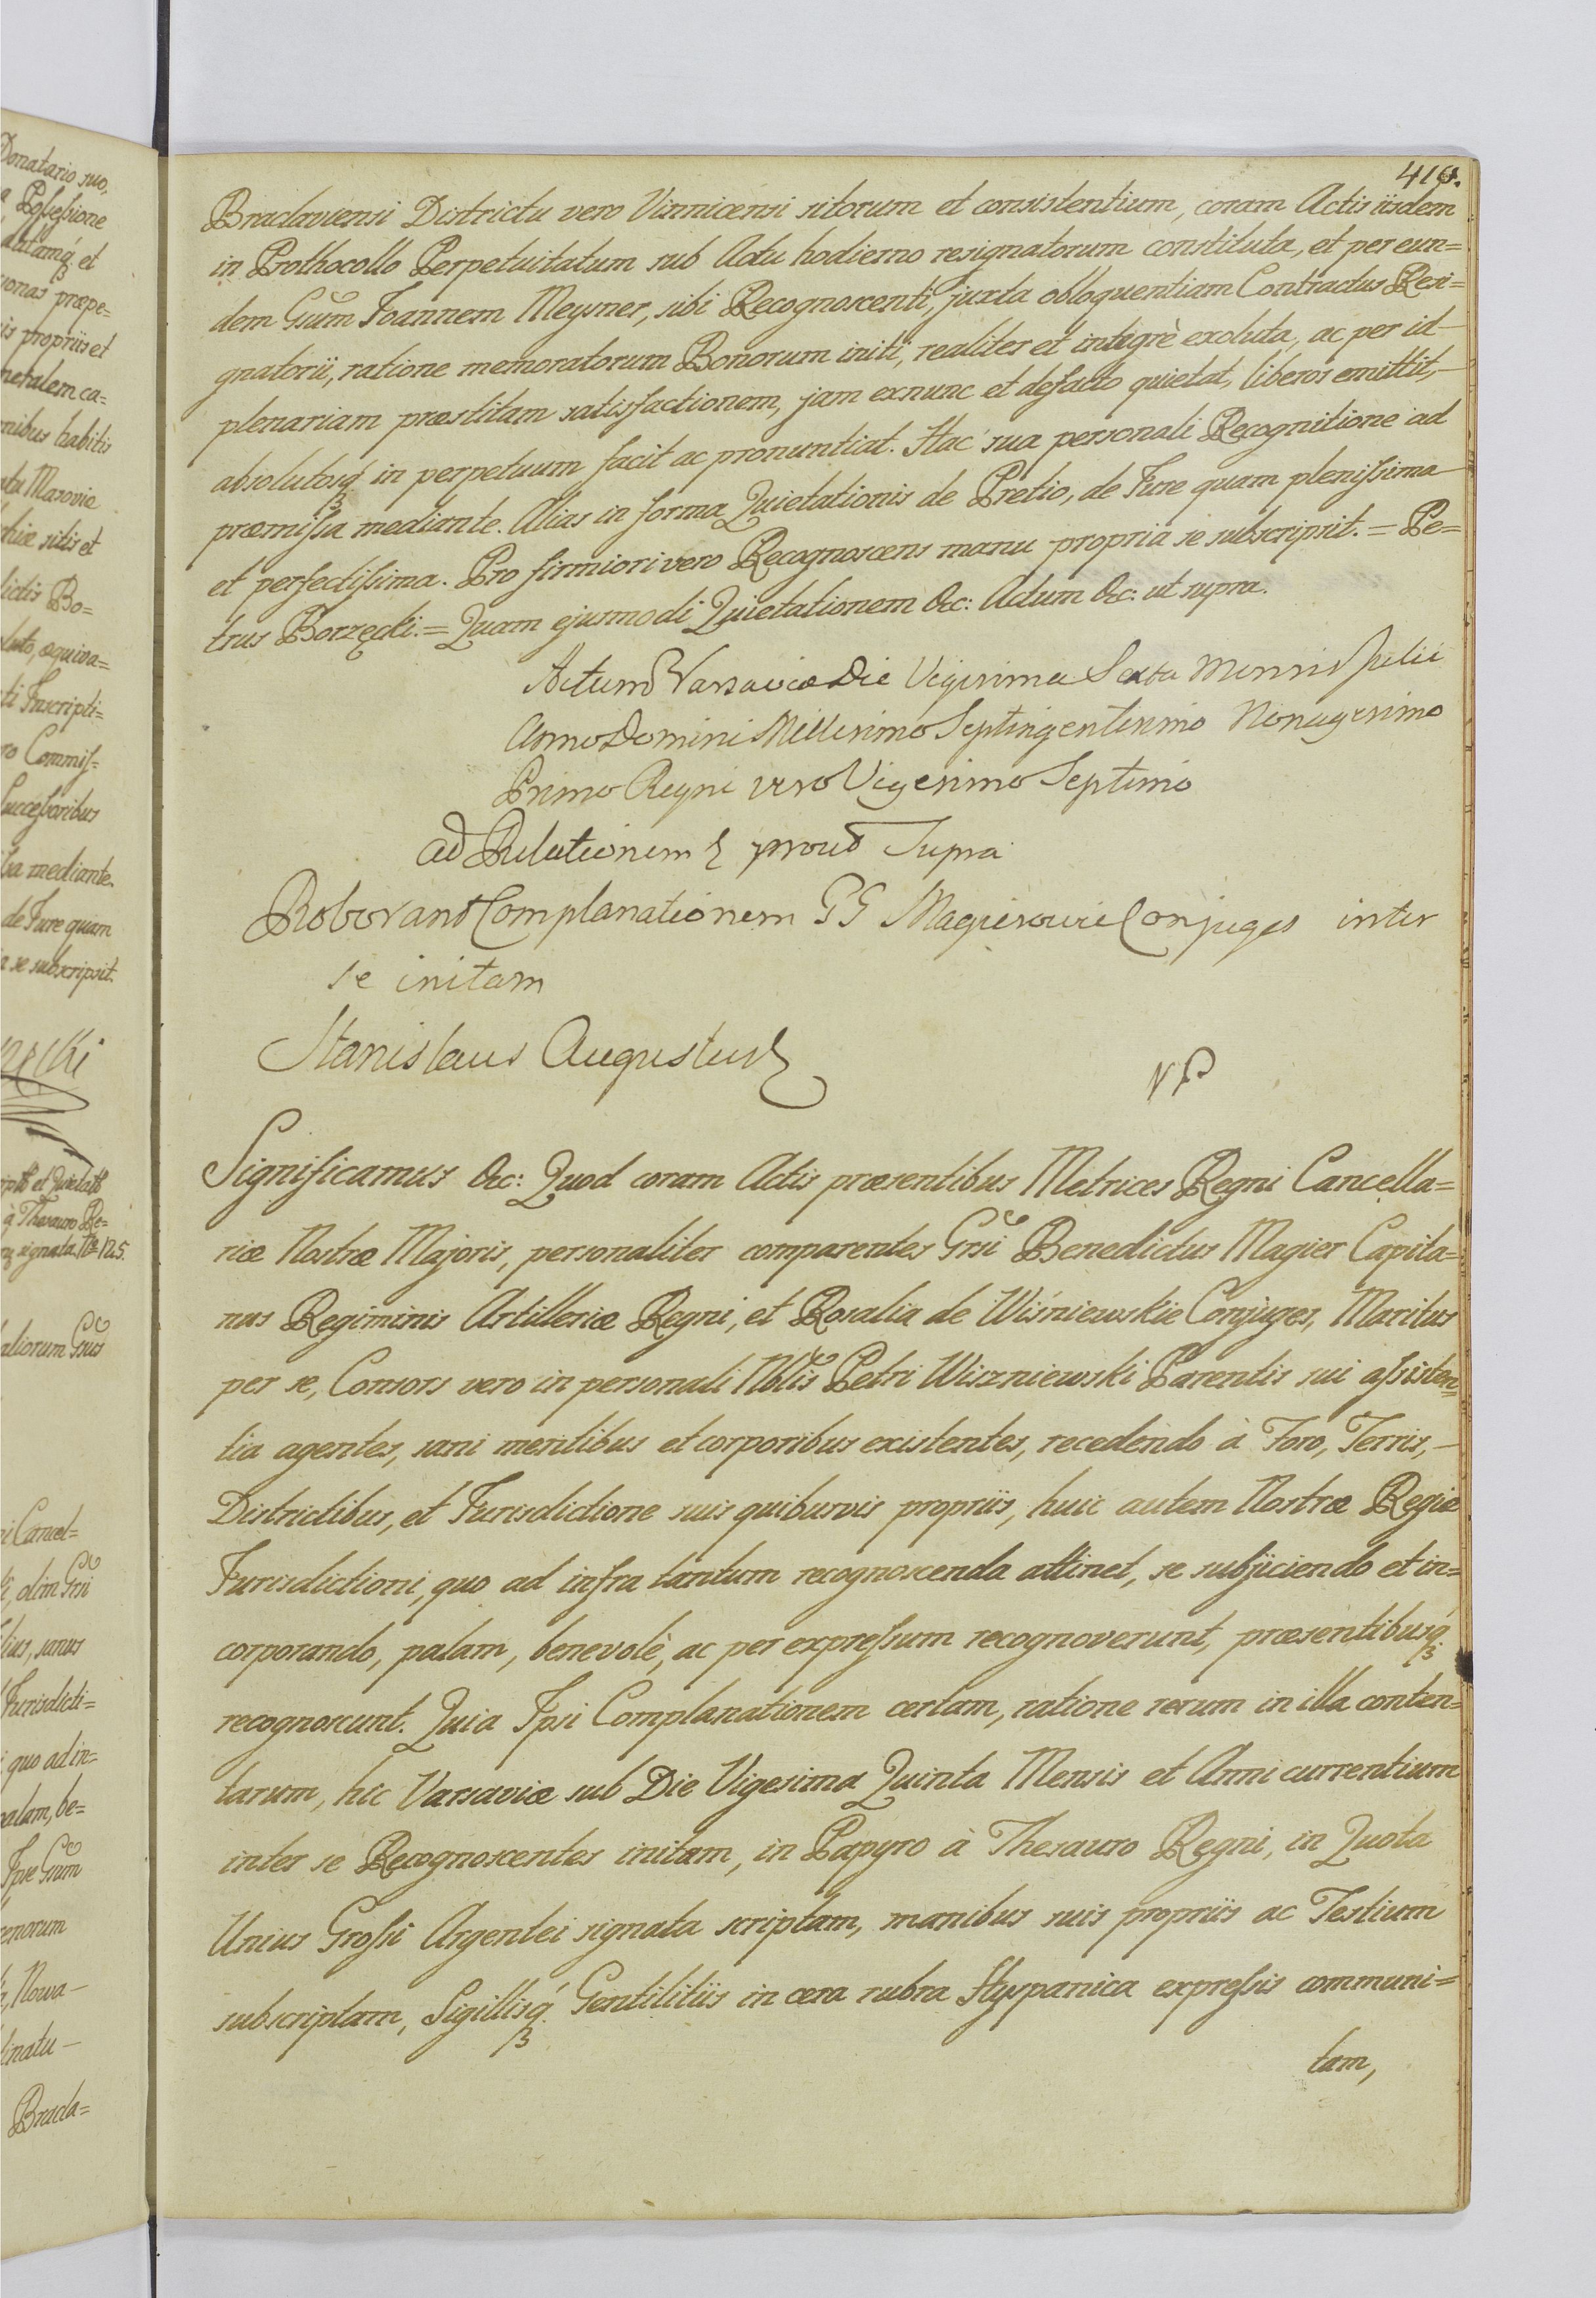 410.
Braclaviensi Districtu vero Vinnicensi sitorum et consistentium, coram Actis iisdem
in Prothocollo Perpetuitatum sub Actu hodierno resignatorum constituta, et per eun=
dem Gsum Joannem Meysner, sibi Recognoscenti, juxta obloquentiam Contractus Resi=
gnatorii, ratione memoratorum Bonorum initi, realiter et integrè exoluta, ac per id
plenariam præstitam satisfactionem, jam exnunc et defacto quietat, liberos emittit,
absolutosq́ꝫ in perpetuum facit ac pronuntiat. Hac sua personali Recognitione ad
præmissa mediante. Alias in forma Quietationis de Pretio, de Jure quam plenissima
et perfectissima. Pro firmiori vero Recognoscens manu propria se subscripsit. = Pe=
trus Borzęcki. = Quam ejusmodi Quietationem &c: Actum &c: ut supra.
Actum Varsaviæ Die Vigesima Sexta Mensis Julii
Anno Domini Millesimo Septingentesimo Nonagesimo
Primo Regni vero Vigesimo Septimo
ad Relationem & prout Supra
Roborant Complanationem GG Magierowie Conjuges inter
se initam
Stanislaus Augustus
Significamus &c: Quod coram Actis præsentibus Metrices Regni Cancella=
riæ Nostræ Majoris, personaliter comparentes Grsi Benedictus Magier Capita=
nus Regiminis Artilleriæ Regni, et Rosalia de Wiśniewskie Conjuges, Maritus
per se, Consors vero in personali Nblis Petri Wiszniewski Parentis sui assisten=
tia agentes, sani mentibus et corporibus existentes, recedendo à Foro, Terris,
Districtibus, et Jurisdictione suis quibusvis propriis, huic autem Nostræ Regiæ
Jurisdictioni, quo ad infra tantum recognoscenda attinet, se subjiciendo et in=
corporando, palam, benevolè, ac per expressum recognoverunt, præsentibusq́ꝫ
recognoscunt. Quia Ipsi Complanationem certam, ratione rerum in illa conten=
tarum, hic Varsaviæ sub Die Vigesima Quinta Mensis et Anni currentium
inter se Recognoscentes initam, in Papyro à Thesauro Regni, in Quota
Unius Grossi Argentei signata scriptam, manibus suis propriis ac Testium
subscriptam, Sigillisq́ꝫ Gentilitiis in cera rubra Hyspanica expressis communi=
tam,